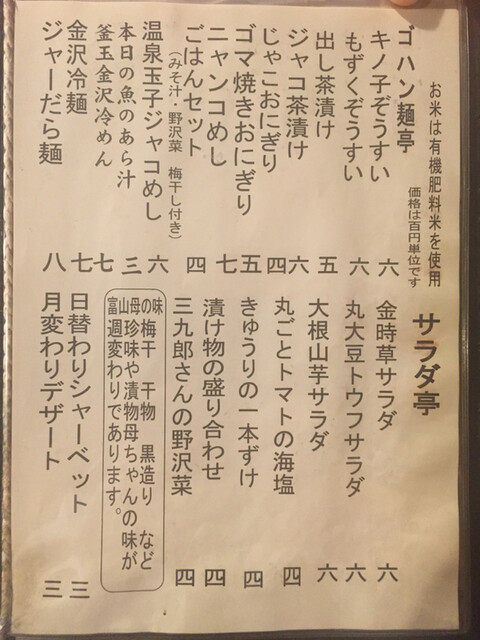 お米は有機肥料米を使用
価格は百円単位です
ゴハン麺亭
キノ子ぞうすい 六
もずくぞうすい 六
出し茶漬け 五
ジャコ茶漬け 六
じゃこおにぎり 四
ゴマ焼きおにぎり 五
ニャンコめし 七
ごはんセット 四
(みそ汁・野沢菜 梅干し付き)
温泉玉子ジャコめし 六
本日の魚のあら汁 三
釜玉金沢冷めん 七
金沢冷麺 七
ジャーだら麺 八
サラダ亭
金時草サラダ 六
丸大豆トウフサラダ 六
大根山芋サラダ 六
丸ごとトマトの海塩 四
きゅうりの一本ずけ 四
漬け物の盛り合わせ 四
三九郎さんの野沢菜 四
富山母の味
梅干 干物 黒造り など
珍味や漬物母ちゃんの味が
週変わりであります。
日替わりシャーベット 三
月変わりデザート 三